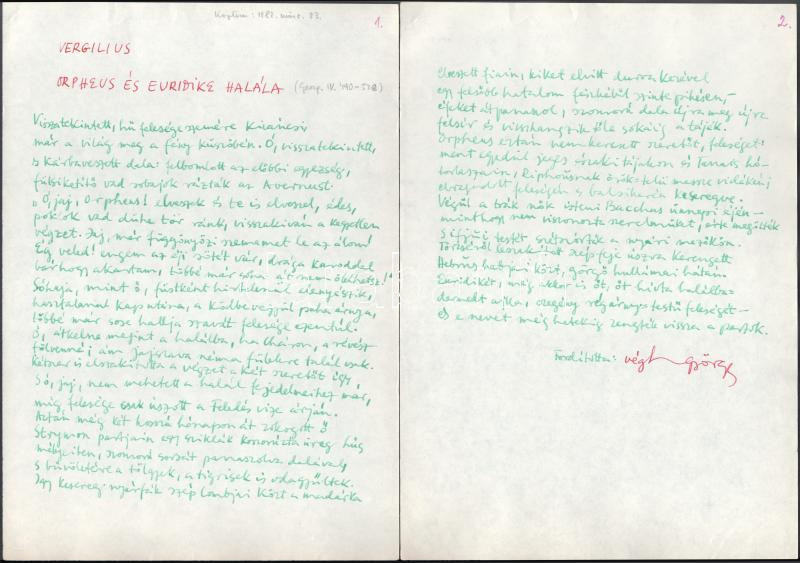 Közlöm: 1982. márc. 23.
1.
VERGILIUS
ORPHEUS ÉS EURIDIKE HALÁLA (Georg. IV. 490-528)
Visszatekintett, hű felesége szemére kiváncsi
már a világ meg a fény küszöbén. Ó, visszatekintett,
s kárbaveszett dala: felbomlott az előbbi egyezség,
fülsiketítő vad robajok rázták az Avernust.
"Ó, jaj, Orpheus! elveszek és te is elveszel, édes,
poklok vad dühe tör ránk, visszakiván a kegyetlen
végzet. Jaj, már függönyözi szememet le az álom!
Ég veled! engem az éji sötét vár, drága karoddal
várhogy akartam, többé már soha át nem ölelhetsz!"
Sóhaja, mint ő, füstként hirtelenül elenyészik,
hasztalanul kap utána, a ködbe vegyül puha árnya,
többé már sose hallja szavát felesége ezentúl.
Ó, átkelne megint a halálba, ha Cháron, a révész
fölvenné; ám jajszava néma fülekre talál csak.
Kétszer is elszakította a végzet a két szeretőt így,
s ó, jaj, nem mehetett a halál fejedelmeihez már,
míg felesége csak úszott a Feledés vize árján.
Aztán még két hosszú hónapon át zokogott ő
Strymon partjain egy sziklák koszorúzta üreg hűs
mélyeiten, szomorú sorsát panaszolva dalával,
s bűvöletére a tölgyek, a tigrisek is odagyűltek.
Így kesereg nyárfák szép lombjai közt a madárka
2.
elveszett fiain, kiket elvitt durva kezével
egy felsőbb hatalom fészkéből szinte pihésen, –
éjeket átpanaszol, szomorú dala újra meg újra
felsír és visszhangzik tőle sokáig a tájék.
Orpheus eztán nem keresett szeretőt, feleséget:
ment egyedül jeges északi tájakon és Tanais hó-
torlaszain, Riphoüsnak örök-telű messze vidékein
elragadott feleségén s balsikerén keseregve.
Végül a trák nők isteni Bacchus ünnepi éjén –
minthogy nem viszonozta szerelmüket, őt megölték
s ifjúi testét szétszórták a nyári mezőkön.
Törzséről leszakított szép feje úszva kerengett
Hebrus habjai közt, görgő hullámai hátán.
Euridikét, még akkor is őt, őt hívta halálba-
dermedt ajka, szegény régi árnyas testű feleségét –
és e nevet még hetekig zengték vissza a partok.
Fordította: Végh György